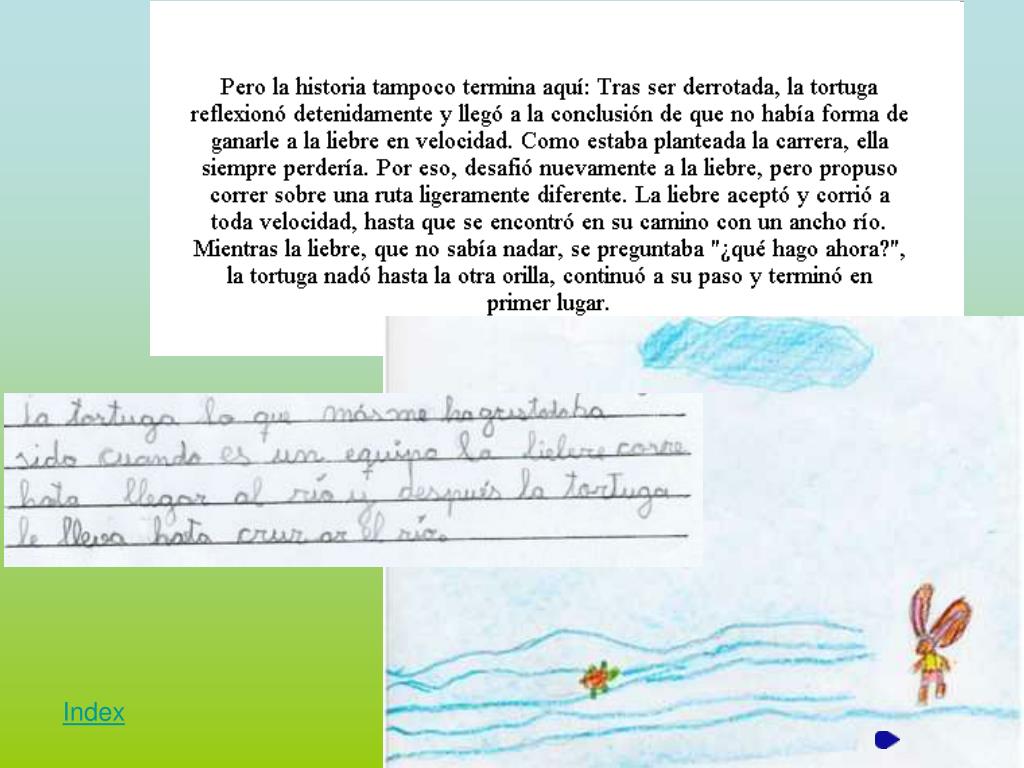 Pero la historia tampoco termina aquí: Tras ser derrotada, la tortuga
reflexionó detenidamente y llegó a la conclusión de que no había forma de
ganarle a la liebre en velocidad. Como estaba planteada la carrera, ella
siempre perdería. Por eso, desafió nuevamente a la liebre, pero propuso
correr sobre una ruta ligeramente diferente. La liebre aceptó y corrió a
toda velocidad, hasta que se encontró en su camino con un ancho río.
Mientras la liebre, que no sabía nadar, se preguntaba "¿qué hago ahora?",
la tortuga nadó hasta la otra orilla, continuó a su paso y terminó en
primer lugar.
la tortuga lo que más me ha
sido cuando es un equipo la liebre corre
hata llegar al río y después la tortuga
le lleva hata cruzar el río.
Index